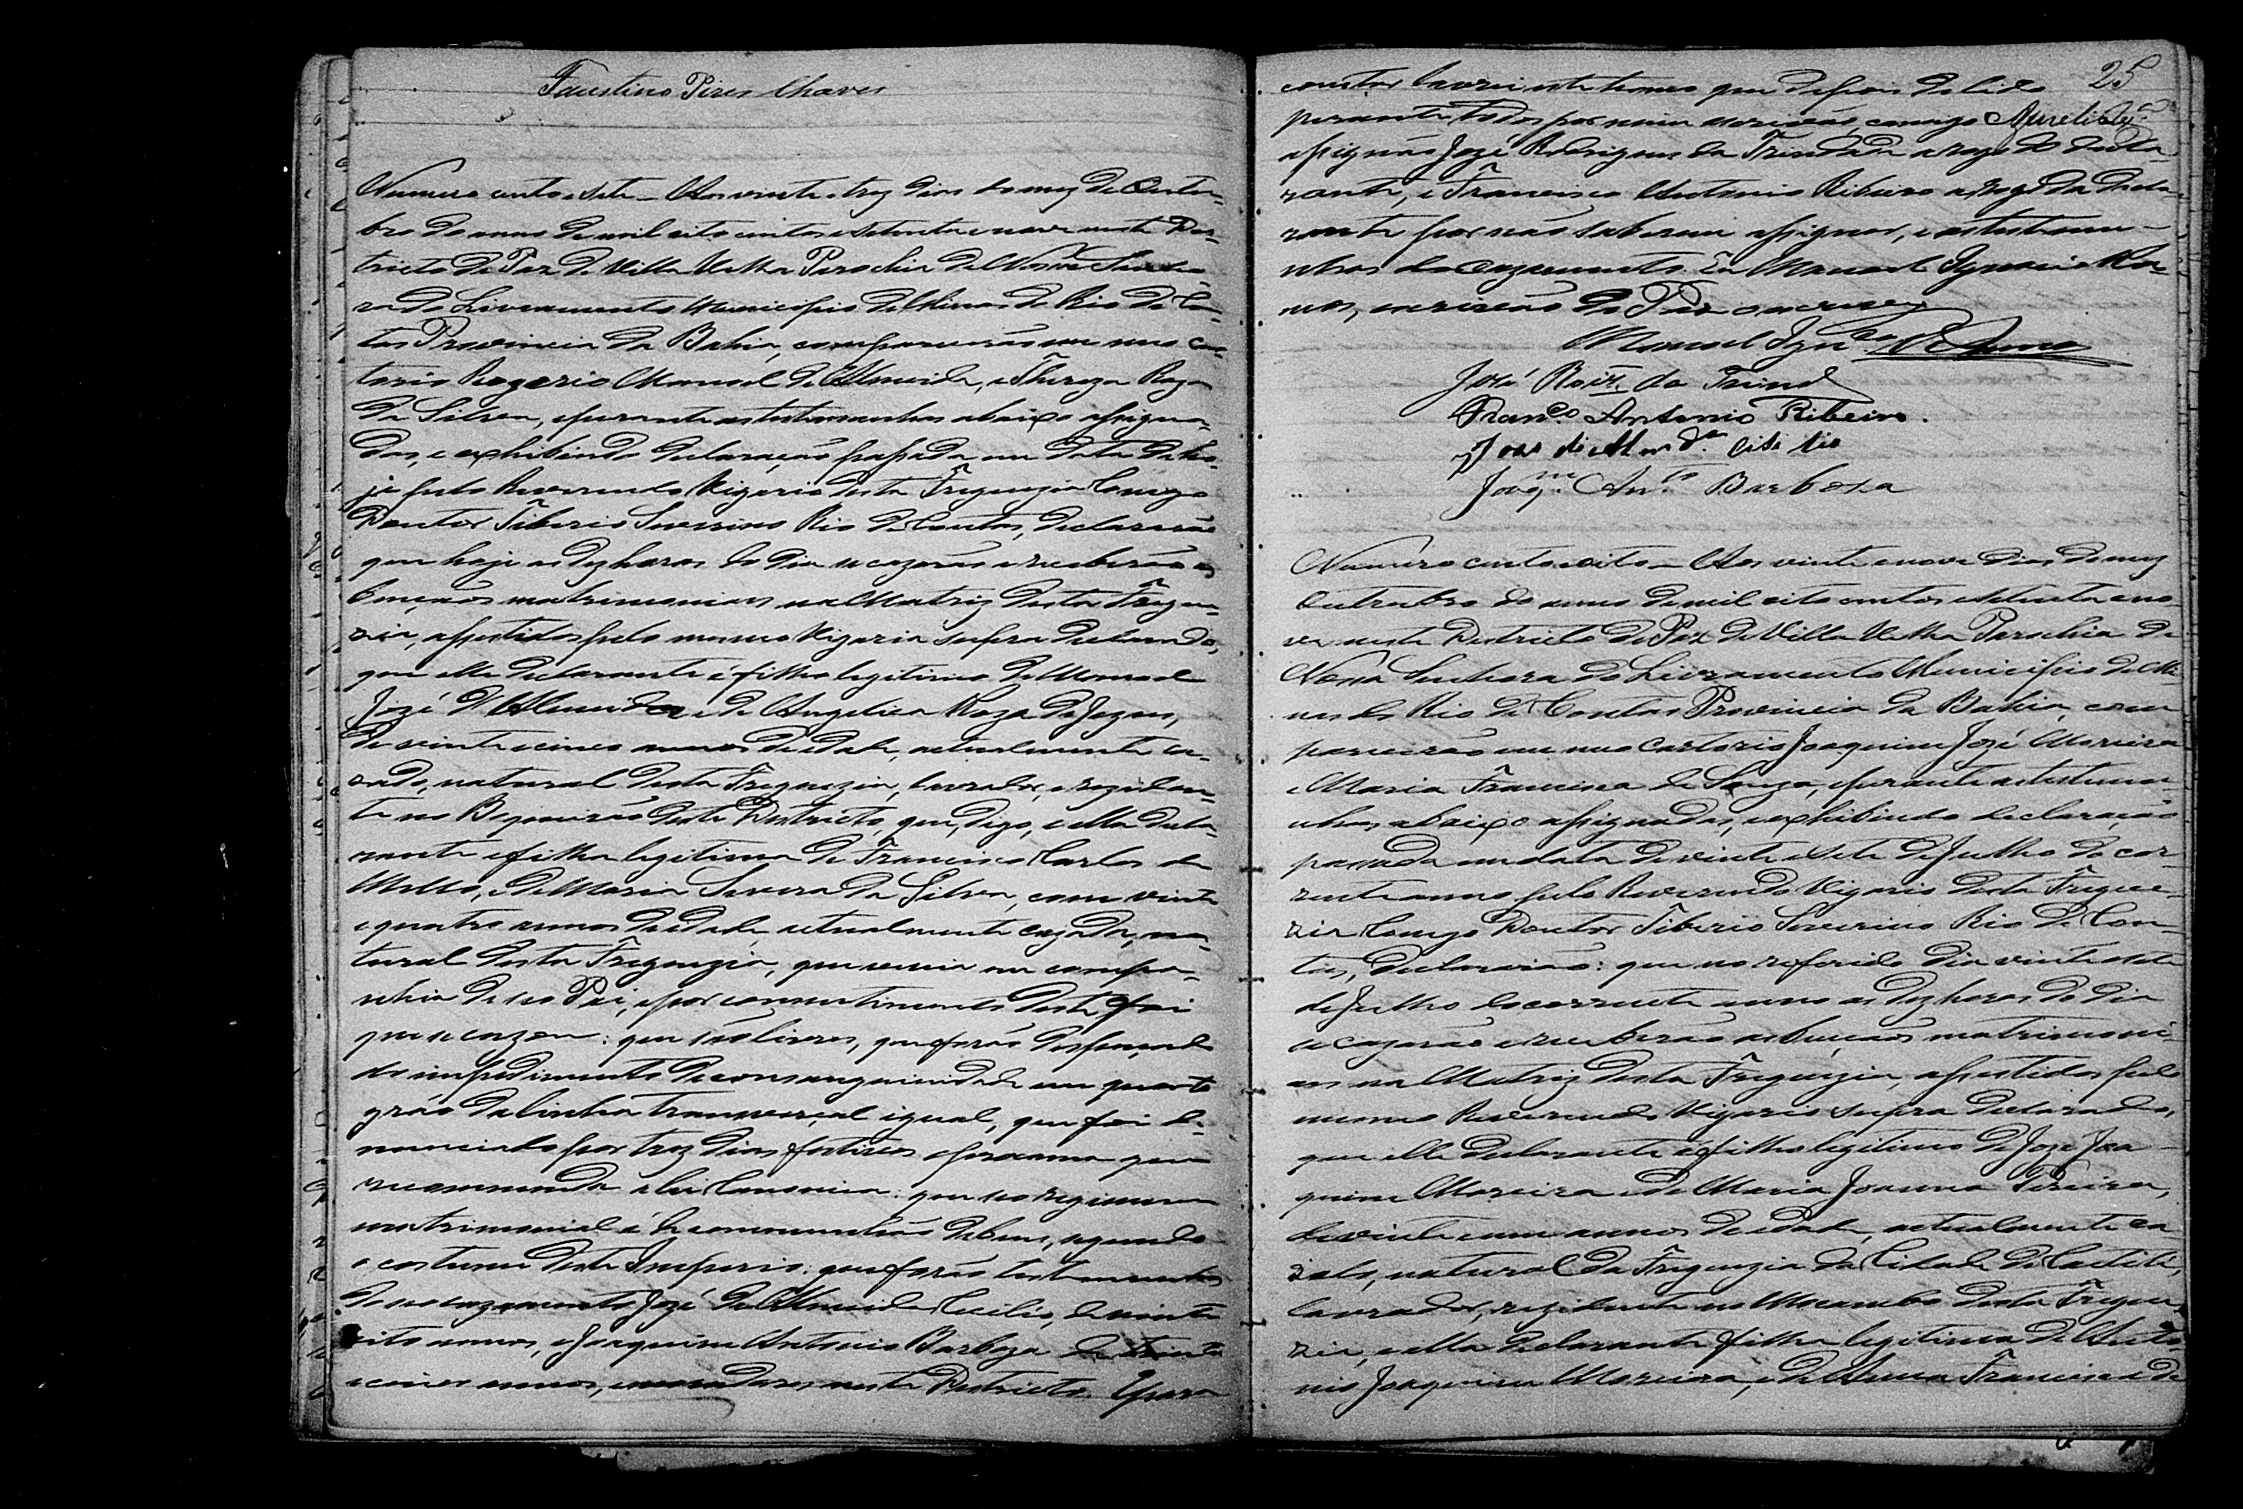 Faustino Pires Chaves
Numero cento e sete — Aos vinte e trez dias do mez de Outu=
bro do anno de mil oito centos e setenta e nove neste Des=
tricto de Paz de Villa Velha Parochia de Nossa Senho=
ra do Livramento Municipio de Minas do Rio de Con=
tas Provincia da Bahia, comparecerão em meo car=
torio Rogerio Manoel de Almeida, e Thereza Roza
da Silva, e perante as testemunhas abaixo assigna=
das, e exhibindo declaração passada em data de ho=
je pelo Reverendo Vigario desta Freguezia Conego
Doutor Tiberio Severino Rio de Contas, declararão
que hoje as dez horas do dia se cazarão e receberão as
bençãos matrimoniaes na Matriz desta Fregue=
zia, assistidos pelo mesmo Vigario supra declarado,
que elle declarante é filho legitimo de Manoel
José d'Almeida e de Angelica Roza de Jezus,
de vinte e cinco annos de idade, actualmente ca=
zado, natural desta Freguezia, lavrador, e reziden=
te no Boqueirão deste Destricto, que, digo, e ella decla=
rante é filha legitima de Francisco Carlos de
Mello, e de Maria Severa da Silva, com vinte
e quatro annos de idade, actualmente cazada, na=
tural desta Freguezia, que vivia em compa=
nhia de seo Pai, e por consentimento deste foi
que se cazou: que são livres, que forão despensados
do impedimento de consanguinidade em quarto
gráo de linha transversal igual, que foi de=
nunciado por trez dias festivos e forma que
recommenda a lei Canonica: que seo regimem
matrimonial é de communhão de bens, segundo
o costume deste Imperio: que forão testemunhas
do seo cazamento José de Almeida Cecilio, de vinte
oito annos, e Joaquim Antonio Barboza de trinta
e cinco annos, moradores neste Destricto. E para
25
constar lavrei este termo que depois de lido
perante todos por mim escrivão, comigo
assignão José Rodrigues da Trindade a rogo do decla=
rante, e Francisco Antonio Ribeiro a rogo da decla=
rante por não saberem assignar, e as testemu=
nhas do cazamento. Eu Manoel Ignacio Ra=
mos, escrivão de Paz o escrevy
Manoel Ign.co Ramos
José Roiz da Trind.e
Fran.co Antonio Ribeiro.
José de Alm.da
Joaq.m An.to Barboza
Numero cento e oito — Aos vinte e nove dias do mez
Outrobro do anno de mil oito centos e setenta e no=
ve neste Destricto de Paz de Villa Velha Parochia de
Nossa Senhora do Livramento Municipio de Mi=
nas do Rio de Contas Provincia da Bahia, com
parecerão em meo cartorio Joaquim José Moreira
e Maria Francisca de Souza, e perante as testemu=
nhas abaixo assignadas, e exhibindo declaração
passada em data de vinte e sete de Julho do cor=
rente anno pelo Reverendo Vigario desta Fregue=
zia Conego Doutor Tiberio Severino Rio de Con=
tas, declararão: que no referido dia vinte e sete
de Julho do corrente anno as dez horas do dia
se cazarão e receberão as bençãos matrimoni=
aes na Matriz desta Freguezia, assistidos pelo
mesmo Reverendo Vigario supra declarado,
que elle declarante é filho legitimo de José Joa=
quim Moreira e de Maria Joanna Pereira,
de vinte e um annos de idade, actualmente ca
zado, natural da Freguezia da Cidade de Caetité,
lavrador, rezidente no Mocambo desta Fregue
zia, e ella declarante filha legitima de Anto=
nio Joaquim Moreira, e de Anna Francisca de